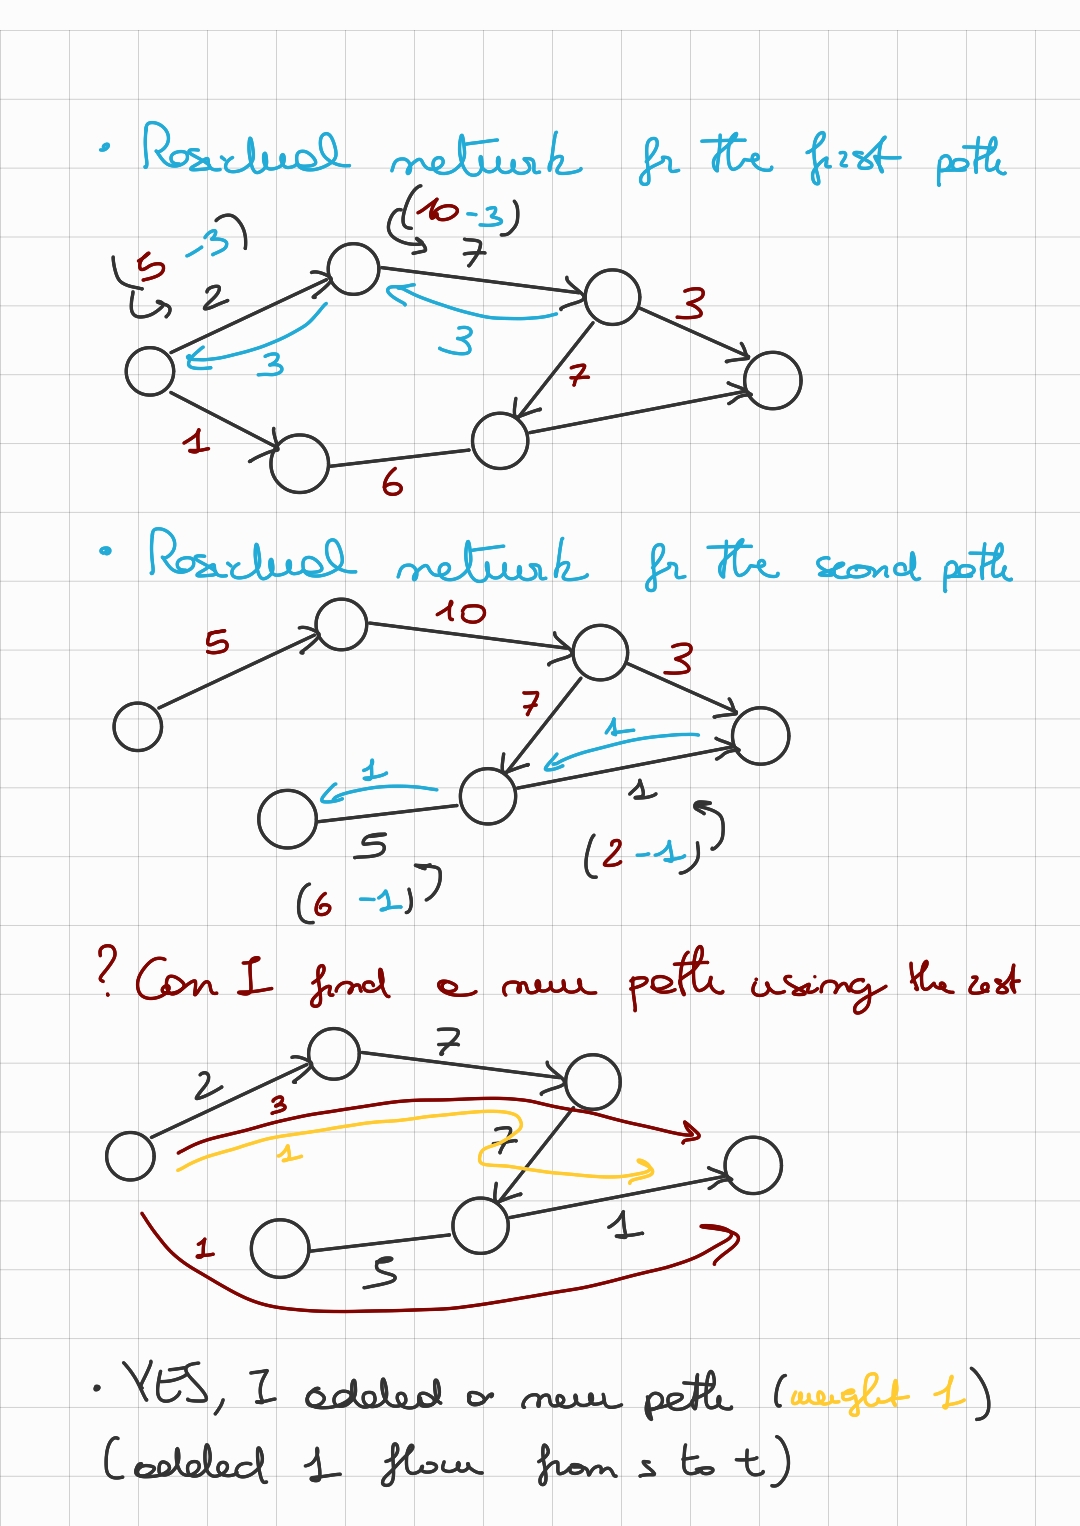 • Residual network for the first path
(10 -3)
(5 -3)
7
2
3
3
3
7
1
6
• Residual network for the second path
10
5
3
7
1
1
1
5
(2 -1)
(6 -1)
? Can I find a new path using the rest
7
2
3
7
1
1
1
5
• YES, I added a new path (weight 1)
(added 1 flow from s to t)